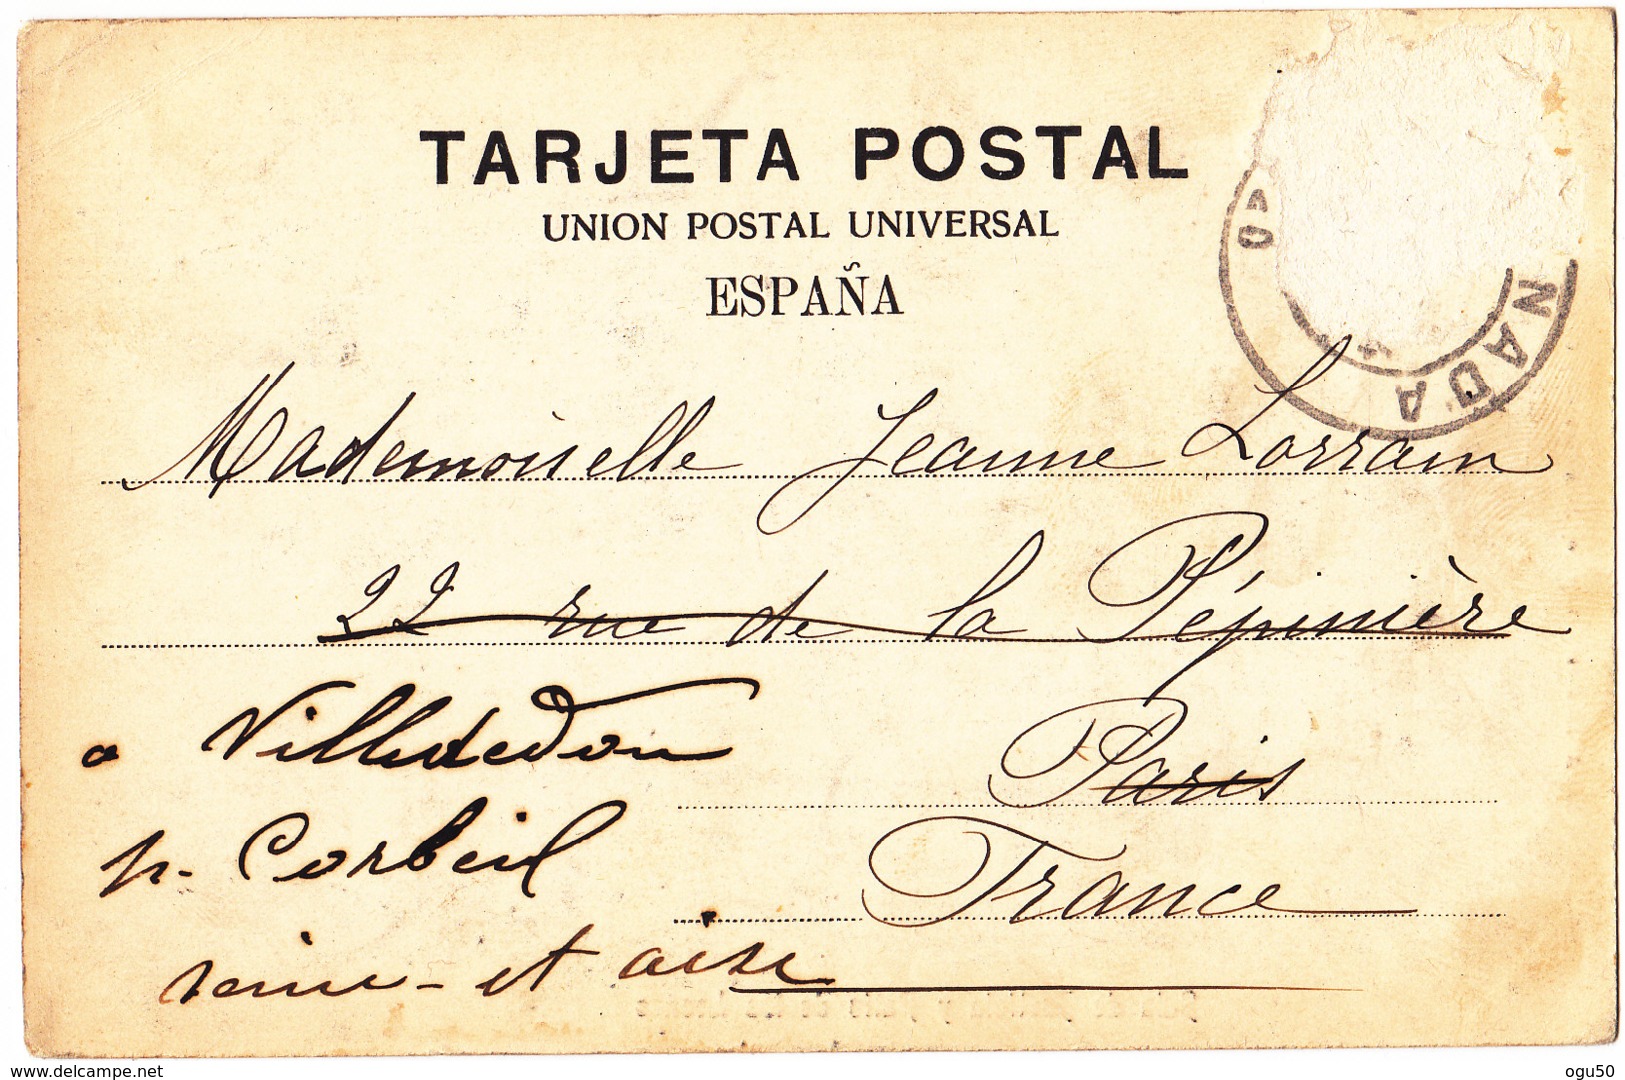 TARJETA POSTAL
UNION POSTAL UNIVERSAL
ESPAÑA
NADA
Mademoiselle Jeanne Lorrain
22 rue de la Pépinière
Paris
France
a Villededon
p. Corbeil
seine-et oise
delcampe.net
ogu50